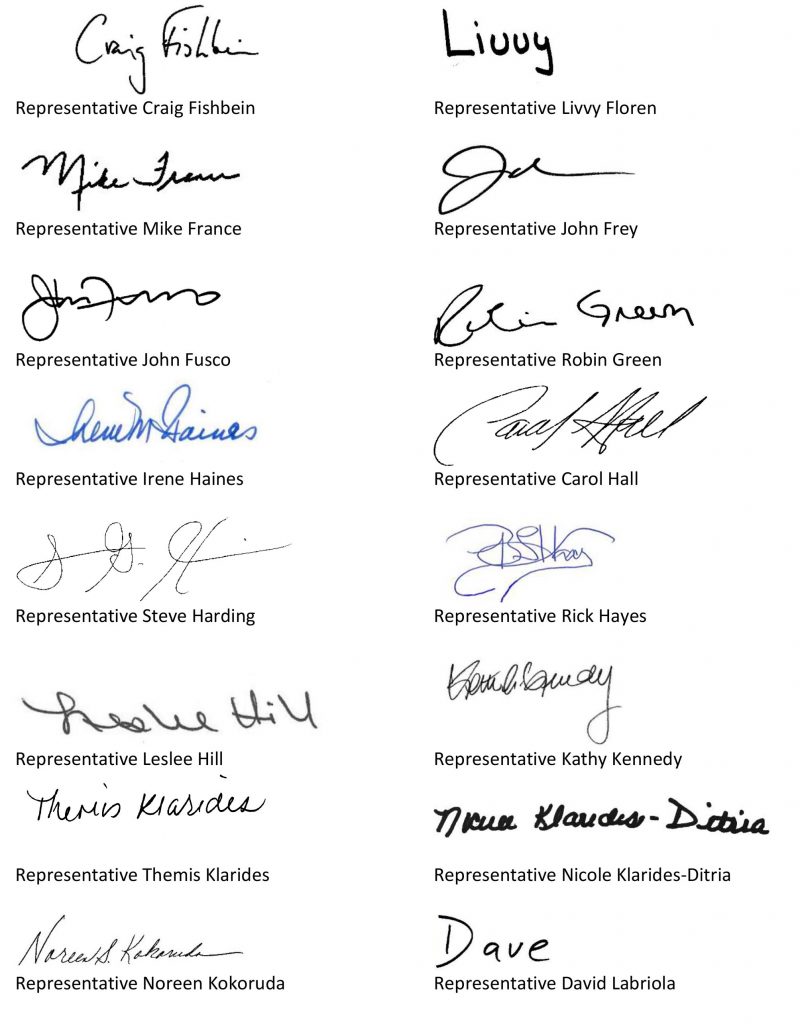 Craig Fishbein Livvy
Representative Craig Fishbein Representative Livvy Floren
Mike France
Representative Mike France Representative John Frey
John Fusco Robin Green
Representative John Fusco Representative Robin Green
Irene M Haines Carol Hall
Representative Irene Haines Representative Carol Hall
Representative Steve Harding Representative Rick Hayes
Leslee Hill Kathy Kennedy
Representative Leslee Hill Representative Kathy Kennedy
Themis Klarides Nicole Klarides-Ditria
Representative Themis Klarides Representative Nicole Klarides-Ditria
Noreen S. Kokoruda Dave
Representative Noreen Kokoruda Representative David Labriola